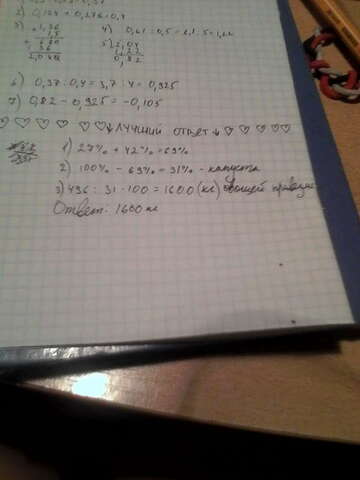 2) 0,124 + 0,276 = 0,4
3) × 1,36
1,5
+ 680
136
2,040
4) 0,61 : 0,5 = 6,1 : 5 = 1,22
5) 2,04
1,22
0,82
6) 0,37 : 0,4 = 3,7 : 4 = 0,925
7) 0,82 - 0,925 = -0,105
♡ ♡ ♡ ♡ ♡ ↓ ЛУЧШИЙ ОТВЕТ ↓ ♡ ♡ ♡ ♡ ♡
1) 27% + 42% = 69%
2) 100% - 69% = 31% - капуста
3) 496 : 31 · 100 = 1600 (кг) овощей
Ответ: 1600 кг